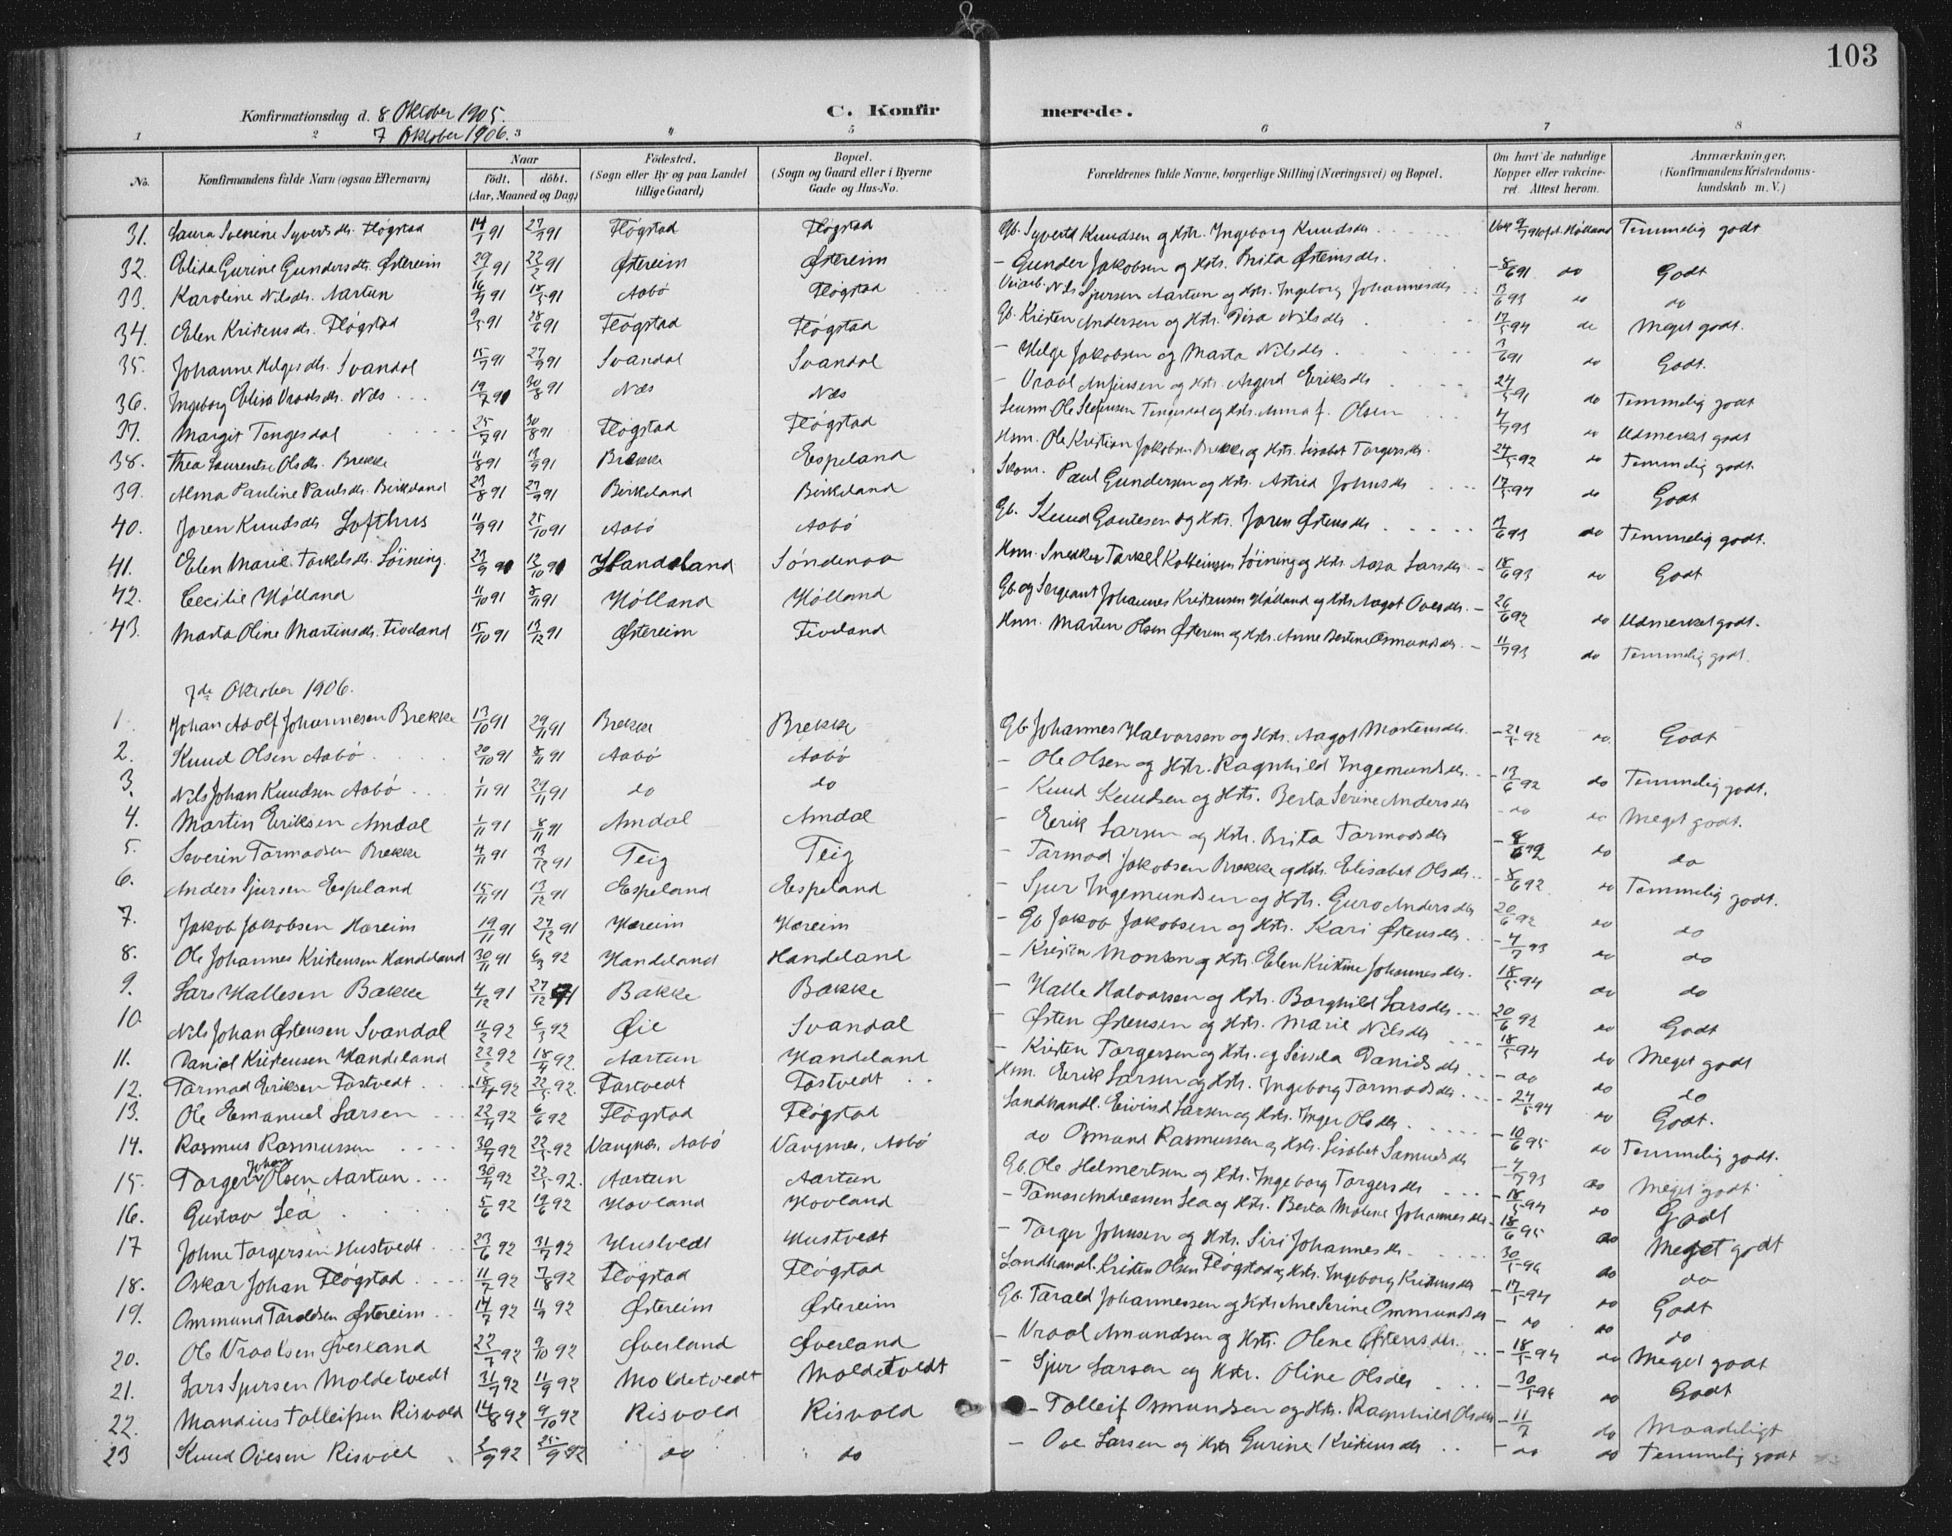 103
Konfirmationsdag d. 8 Oktober 1905.
7 Oktober 1906.
C. Konfirmerede.
1 2 3 4 5 6 7 8
No. Konfirmandens fulde Navn (ogsaa Efternavn) Naar født. døbt. (Aar, Maaned og Dag) Fødested. (Sogn eller By og paa Landet tillige Gaard) Bopæl. (Sogn og Gaard eller i Byerne Gade og Hus-No. Forældrenes fulde Navne, borgerlige Stilling (Næringsvei) og Bopæl. Om havt de naturlige Kopper eller vakcineret. Attest herom. Anmærkninger. (Konfirmandens Kristendomskundskab m. V.)
31. Laura Svenine Syvertsdtr. Fløgstad 14/1 91 Fløgstad Fløgstad Gb. Syvert Knudsen og Hstr. Ingeborg Knudsdtr. Temmelig godt
32. Elida Gurine Gundersdtr. Østereim 29/1 91 22/2 91 Østereim Østereim – Gunder Jakobsen og Hstr. Brita Østensdtr. – 8/6 91 do Godt
33. Karoline Nilsdtr. Aartun 16/4 91 18/5 91 Aabø Fløgstad Nils Sjursen Aartun og Hstr. Ingeborg Johannesdtr. 13/6 93 do do
34. Elen Kristensdtr. Fløgstad 9/5 91 28/6 91 Fløgstad Fløgstad Gb. Kristen Andersen og Hstr. Nilsdtr. 17/5 94 do Meget godt.
35. Johanne Helgesdtr. Svandal 15/7 91 27/9 91 Svandal Svandal – Helge Jakobsen og Marta Nilsdtr. do Godt.
36. Ingeborg Elisa Vraalsdtr. Næs 19/7 91 30/8 91 Næs Næs – Vraal og Hstr. Asgerd Eriksdtr. 24/5 91 do Temmelig godt
37. Margit Tengesdal 25/7 91 30/8 91 Fløgstad Fløgstad Ole Tengesdal og Hstr. Anna f. Olsen 4/7 93 do Udmerket godt
38. Thea Laurentse Olsdtr. Brekke 11/8 91 13/9 91 Brekke Espeland Hsm. Ole Kristian Jakobsen Brekke og Hstr. Lisabet Torgersdtr. 24/5 92 do Temmelig godt.
39. Alma Pauline Paulsdtr. Birkeland 23/8 91 27/9 91 Birkeland Birkeland Skom. Paul Gundersen og Hstr. Astrid Johnsdtr 17/5 94 do Godt
40. Joren Knudsdtr Lofthus 11/9 91 25/10 91 Aabø Aabø Gb. Knud Gautesen og Hstr. Joren Østensdtr 93 do Temmelig godt.
41. Elen Marie Torkelsdtr. Løining. 23/9 91 Handeland Søndenaa Hsm. Snekker Torkel Kolbeinsen Løining og Hstr. Aasa Larsdtr – 18/6 93 do Godt
42. Cecilie Hølland 11/10 91 8/11 91 Hølland Hølland Gb. og Sergeant Johannes Kristensen Hølland og Hstr. Aagot Ovesdtr. – 26/6 92 do Udmerket godt.
43. Marta Oline Martinsdtr. Tveland 15/10 91 13/12 91 Østereim Tveland Hsm. Martin Olsen Østereim og Hstr. Anne Bertine Osmundsdtr. – 11/7 93 do Temmelig godt.
7de Oktober 1906.
1. Johan Adolf Johannesen Brekke 13/10 91 29/11 91 Brekke Brekke Gb Johannes Halvorsen og Hstr. Aagot Mortensdtr. – 21/5 92 do. Godt
2. Knud Olsen Aabø 20/10 91 8/11 91 Aabø Aabø – Ole Olsen og Hstr. Ragnhild Ingemundsdtr. – 13/6 92 do Temmelig godt.
3. Nils Johan Knudsen Aabø 1/11 91 29/11 91 do do – Knud Knudsen og Hstr. Berta Serine Andersdtr – do do Meget godt.
4. Martin Eriksen Amdal 1/11 91 8/11 91 Amdal Amdal – Eerik Larsen og Hstr. Brita Tormodsdtr – 8/6 92 do do
5. Severin Tormodsen Brekke 4/11 91 13/12 91 Teig Teig – Tormod Jakobsen Brekke og Hstr. Elisabet Olsdtr. – 8/6 92 do Temmelig godt.
6. Anders Sjursen Espeland 15/11 91 13/12 91 Espeland Espeland – Sjur Ingemundsen og Hstr. Guro Andersdtr 20/6 92 do do
7. Jakob Jakobsen Hæreim 19/11 91 27/12 91 Hæreim Hæreim – Gb Jakob Jakobsen og Hstr. Kari Østensdtr. – 4/7 93 do do
8. Ole Johannes Kristensen Handeland 30/11 91 6/3 92 Handeland Handeland – Kristen Monsen og Hstr. Elen Kristine Johannesdtr. 18/5 94 do do
9. Lars Hallesen Bakke 4/12 91 27/12 91 Bakke Bakke – Halle Halvorsen og Hstr. Borghild Larsdtr. 20/6 92 do Godt
10. Nils Johan Østensen Svandal 11/2 92 6/3 92 Øie Svandal – Østen Østensen og Hstr. Marie Nilsdtr 18/5 94 do Meget godt
11. Daniel Kristensen Handeland 22/2 92 18/4 92. Aartun Handeland – Kristen Torgersen og Hstr. og Sissela Danielsdtr – do do do
12. Tormod Eriksen Tostvedt 18/4 92 22/5 92. Tostvedt Tostvedt Hsm. Eerik Larsen og Hstr. Ingeborg Tormodsdtr. – 24/5 94 do Godt.
13. Ole Emanuel Larsen 22/4 92 6/6 92 Fløgstad Fløgstad Landhandl. Eivind Larsen og Hstr. Inger Olsdtr. – 10/6 95 do Temmelig godt.
14. Rasmus Rasmussen 30/4 92 22/5 92 Vangnes, Aabø Vangnes, Aabø do Osmund Rasmussen og Hstr. Lisabet Samuelsdtr – 4/7 93 do Meget godt
15. Torger Johan Olsen Aartun 30/4 92 22/5 92. Aartun Aartun Gb. Ole Helmertsen og Hstr. Ingeborg Torgersdtr – 18/5 94 do Godt
16. Gustav Lea 5/6 92 19/6 92 Hovland Hovland – Tomas Andreassen Lea og Hstr. Berta Malene Johannesdtr – 18/6 95 do Meget godt
17 Johne Torgersen Hustvedt 23/6 92 31/7 92 Hustvedt Hustvedt – Torger Johnsen og Hstr. Siri Johannesdtr. 30/5 96 do do
18. Oskar Johan Fløgstad 11/7 92 7/8 92 Fløgstad Fløgstad Landhandl. Kristen Olsen Fløgstad og Hstr. Ingeborg Kristensdtr – 17/5 94 do Godt
19. Ommund Taraldsen Østereim 14/7 92 11/9 92 Østereim Østereim Gb. Tarald Johannessen og Hstr. Ane Serine Ommundsdtr – do do do
20. Ole Vraalsen Øverland 22/7 92 9/10 92 Øverland Øverland – Vraal Amundsen og Hstr. Olene Østensdtr. – 18/5 94 do Meget godt
21. Lars Sjursen Moldetvedt 31/7 92 11/9 92 Moldetvedt Moldetvedt – Sjur Larsen og Hstr. Oline Olsdtr – 30/5 96 do Godt
22. Mandius Tolleifsen Risvold 14/8 92 9/10 92 Risvold Risvold – Tolleif Osmundsen og Hstr. Ragnhild Olsdtr – 11/7 do Maadeligt
23 Knud Ovesen Risvoll 2/9 92 25/9 92 do do – Ove Larsen og Hstr Gurine Kristensdtr – do do Temmelig godt